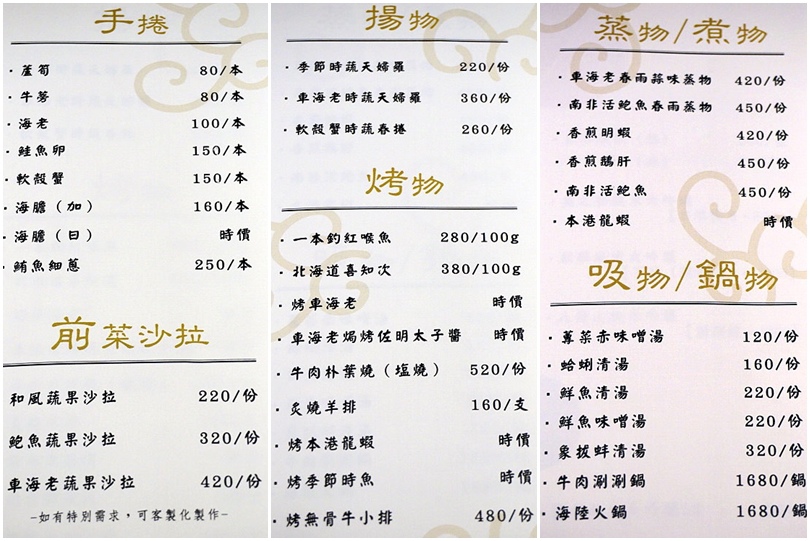 手捲
・蘆筍 80/本
・牛蒡 80/本
・海老 100/本
・鮭魚卵 150/本
・軟殼蟹 150/本
・海膽（加） 160/本
・海膽（日） 時價
・鮪魚細蔥 250/本
前菜沙拉
和風蔬果沙拉 220/份
鮑魚蔬果沙拉 320/份
車海老蔬果沙拉 420/份
–如有特別需求，可客製化製作–
揚物
・季節時蔬天婦羅 220/份
・車海老時蔬天婦羅 360/份
・軟殼蟹時蔬春捲 260/份
烤物
・一本釣紅喉魚 280/100g
・北海道喜知次 380/100g
・烤車海老 時價
・車海老焗烤佐明太子醬 時價
・牛肉朴葉燒（塩燒） 520/份
・炙燒羊排 160/支
・烤本港龍蝦 時價
・烤季節時魚 時價
・烤無骨牛小排 480/份
蒸物/煮物
・車海老春雨蒜味蒸物 420/份
・南非活鮑魚春雨蒸物 450/份
・香煎明蝦 420/份
・香煎鵝肝 450/份
・南非活鮑魚 450/份
・本港龍蝦 時價
吸物/鍋物
・蕈菜赤味噌湯 120/份
・蛤蜊清湯 160/份
・鮮魚清湯 220/份
・鮮魚味噌湯 220/份
・象拔蚌清湯 320/份
・牛肉涮涮鍋 1680/鍋
・海陸火鍋 1680/鍋